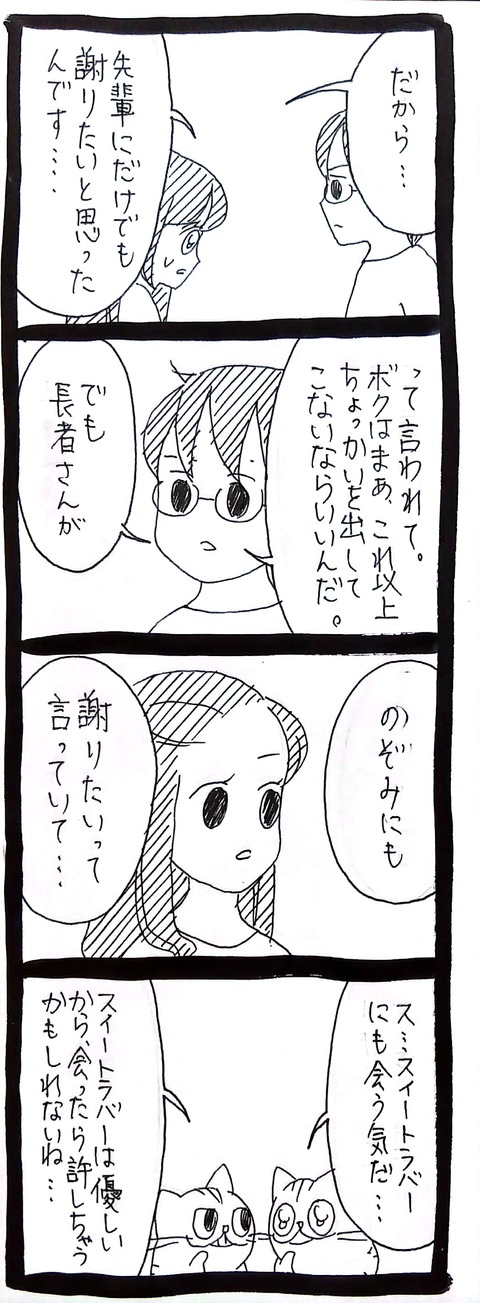 だから…
先輩にだけでも
謝りたいと思った
んです…．
って言われて。
ボクはまあ、これ以上
ちょっかいを出して
こないならいいんだ。
でも
長者さんが
のぞみにも
謝りたいって
言っていて…
ス…スイートラバー
にも会う気だ…
スイートラバーは優しい
から、会ったら許しちゃう
かもしれないね…